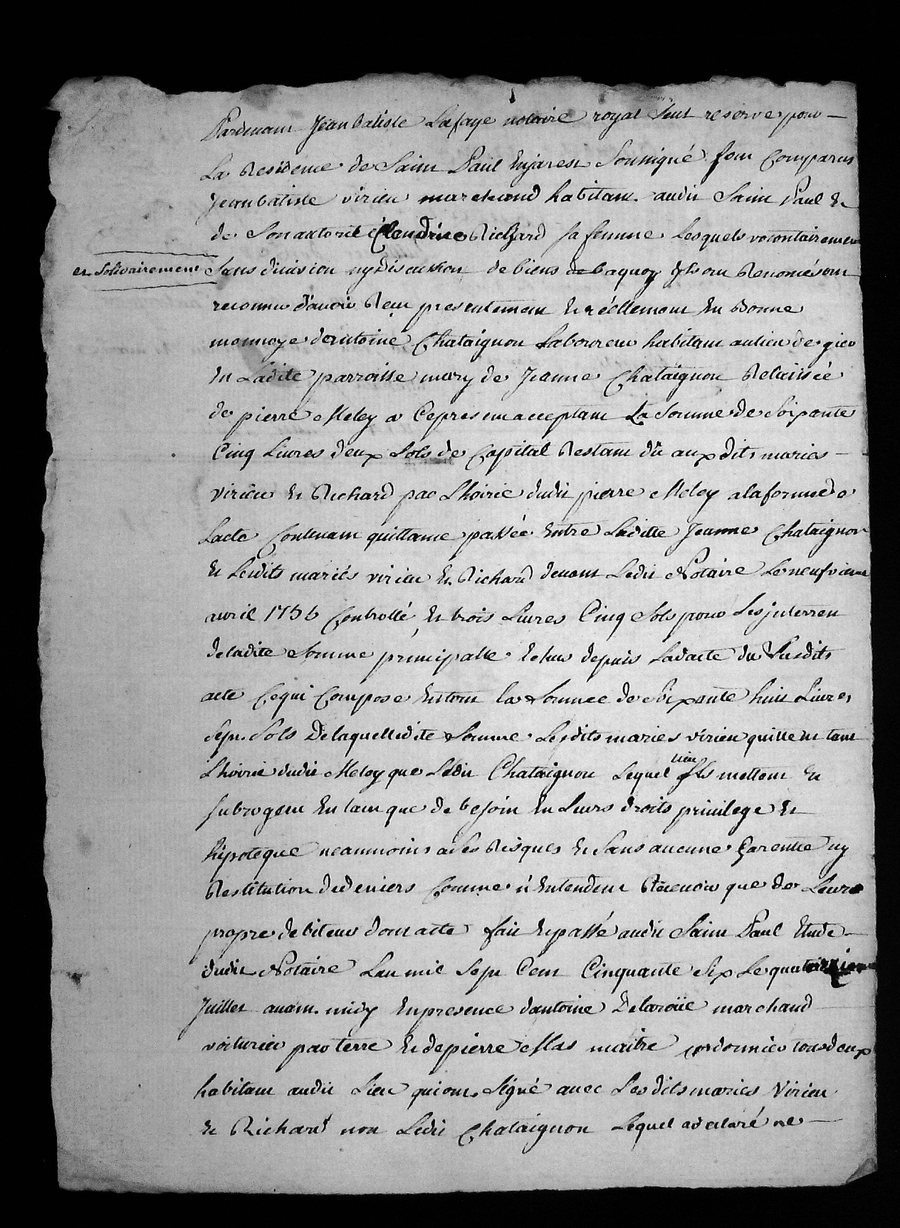 Pardevant Jeanbatiste Lafaye notaire royal Seul reservé pour
La Residence de Saint Paul Enjarest Soussigné font Comparus
Jeanbatiste virieu marchand habitant audit Saint Paul Et
de Son autorité Richard sa femme Lesquels volontairement
et solidairement Sans division ny discussion de biens de laquoy ils ont Renoncé ont
reconnu d'avoir Reçu presentement Et réellement En Bonne
monnoye d'entoine Chataignon Laboureur habitant au lieu de
En Ladite parroisse mary de Jeanne Chataignon Relaissée
de pierre Meley a Cepresent acceptant La Somme de Soixante
Cinq Livres deux Sols de Capital Restant dû aux dits mariés
virieu Et Richard par Lhoirie dudit pierre Meley a la forme de
Lacte Contenant quittance passée Entre Laditte Jeanne Chataignon
Et Lesdits mariés virieu Et Richard devant Ledit Notaire Le neufvieme
avril 1756 Controllé Et trois Livres Cinq Sols pour Les interren
deladite Somme principalle Echus depuis Ladacte du Susdits
acte Cequi Compose Entout la Somme de Soixante huit Livres
Sept Sols De laquelledite Somme Lesdits mariés virieu quittent tant
Lhoirie dudit Meley que Ledit Chataignon Lequel ils mettent Et
subrogent En tant que de besoin En Leurs droits privilege Et
hipoteque neanmoins a Ses Risques Et Sans aucune Garentie ny
Restitution de deniers Comme n'Entendent Recevoir que de Leurs
propre debiteur dont acte fait Et passé audit Saint Paul Etude
dudit Notaire Lan mil Sept Cent Cinquante Six Le quatorzieme
Juillet avant midy En presence d'antoine Delaroüe marchand
voiturier par terre Et de pierre Mas maitre cordonnier tous deux
habitant audit Lieu qui ont Signé avec Lesdits mariés Virieu
Et Richard non Ledit Chataignon Lequel a declaré ne